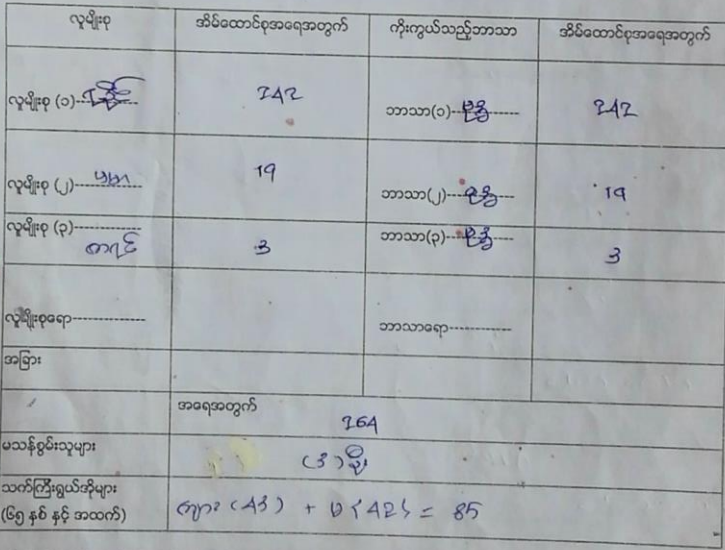 လူမျိုးစု အိမ်ထောင်စုအရေအတွက် ကိုးကွယ်သည့်ဘာသာ အိမ်ထောင်စုအရေအတွက်
လူမျိုးစု (၁)--- 242 ဘာသာ(၁)--ဗုဒ္ဓ------ 242
လူမျိုးစု (၂)---ဗမာ--- 19 ဘာသာ(၂)---ဗုဒ္ဓ--- 19
လူမျိုးစု (၃)------------ ဘာသာ(၃)--ဗုဒ္ဓ----
ကရင် 3 3
လူမျိုးစုရော--------------- ဘာသာရော-------------
အခြား
အရေအတွက်
264
မသန်စွမ်းသူများ (3) ဦး
သက်ကြီးရွယ်အိုများ
(၆၅ နှစ် နှင့် အထက်) ကျား (43) + မ (42) = 85